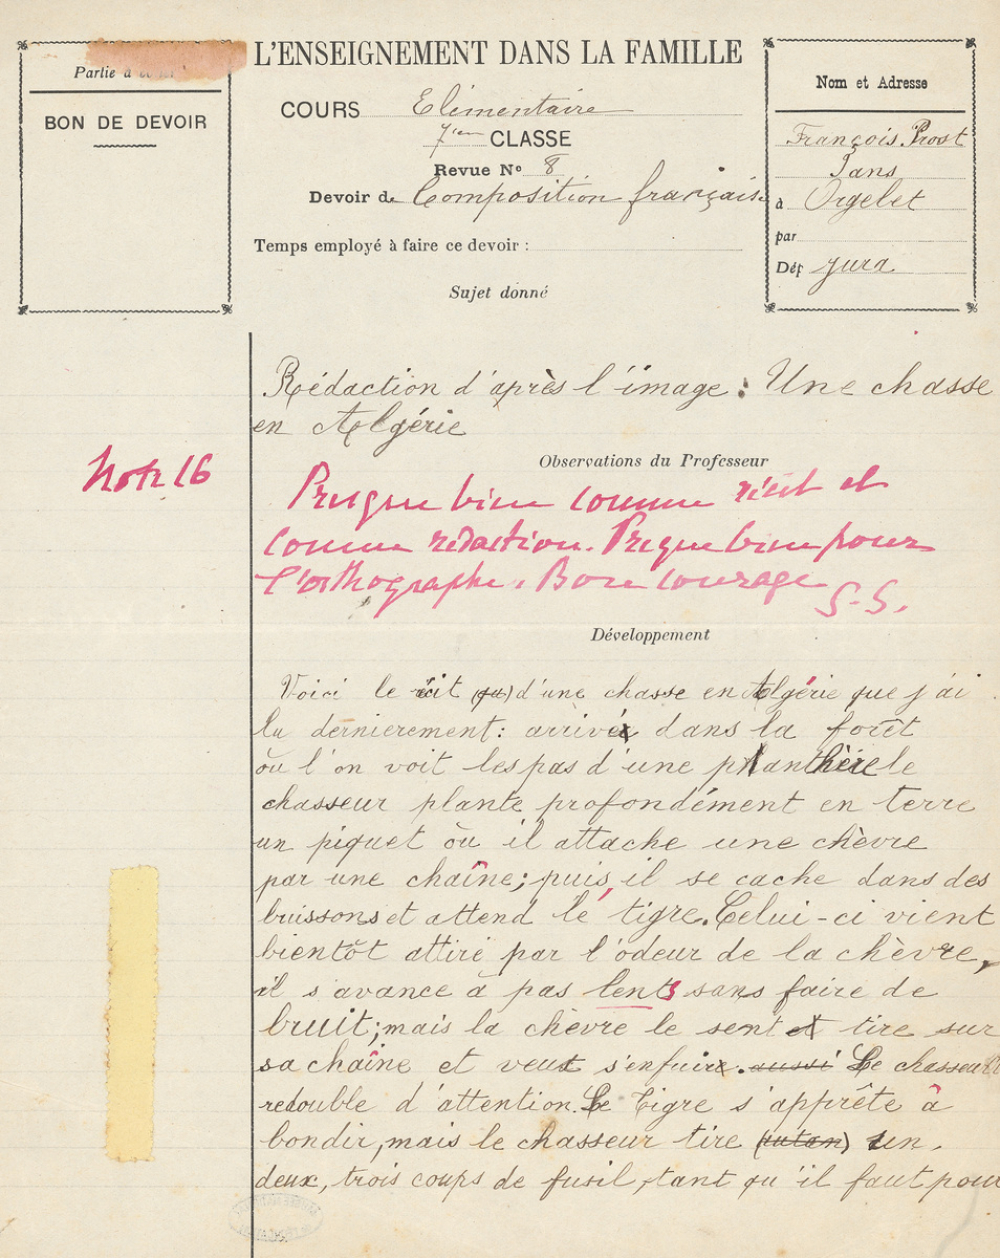 Partie à
BON DE DEVOIR
L'ENSEIGNEMENT DANS LA FAMILLE
COURS Elémentaire
7ième CLASSE
Revue No 8
Devoir de Composition française
Temps employé à faire ce devoir :
Sujet donné
Nom et Adresse
François Prost
Jans
à Orgelet
par
Dép Jura
Rédaction d'après l'image : Une chasse
en Algérie
Note 16
Observations du Professeur
Presque bien comme récit et
comme rédaction. Presque bien pour
l'orthographe. Bon courage
S-S.
Développement
Voici le récit (qu) d'une chasse en Algérie que j'ai
lu dernierement : arrivé dans la forêt
où l'on voit les pas d'une panthère le
chasseur plante profondément en terre
un piquet où il attache une chèvre
par une chaîne ; puis, il se cache dans des
buissons et attend le tigre. Celui-ci vient
bientôt attiré par l'odeur de la chèvre,
il s'avance à pas lents sans faire de
bruit ; mais la chèvre le sent et tire sur
sa chaîne et veut s'enfuir. aussi Le chasseur
redouble d'attention. Le Tigre s'apprête à
bondir, mais le chasseur tire (autan) un,
deux, trois coups de fusil, tant qu'il faut pour